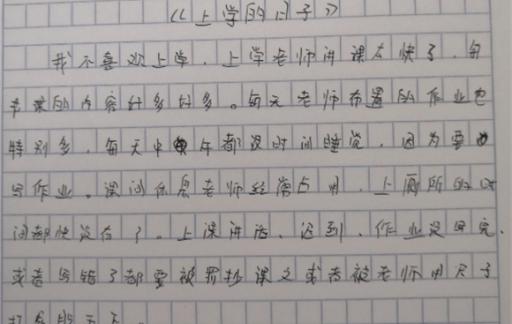 《上学的日子》
我不喜欢上学，上学老师讲课太快了，每
节课的内容好多好多。每天老师布置的作业也
特别多，每天中午都没时间睡觉，因为要
写作业。课间休息老师经常占用，上厕所的时
间都快没有了。上课讲话，迟到，作业没写完，
或者写错了都要被罚抄课文或者被老师用尺子